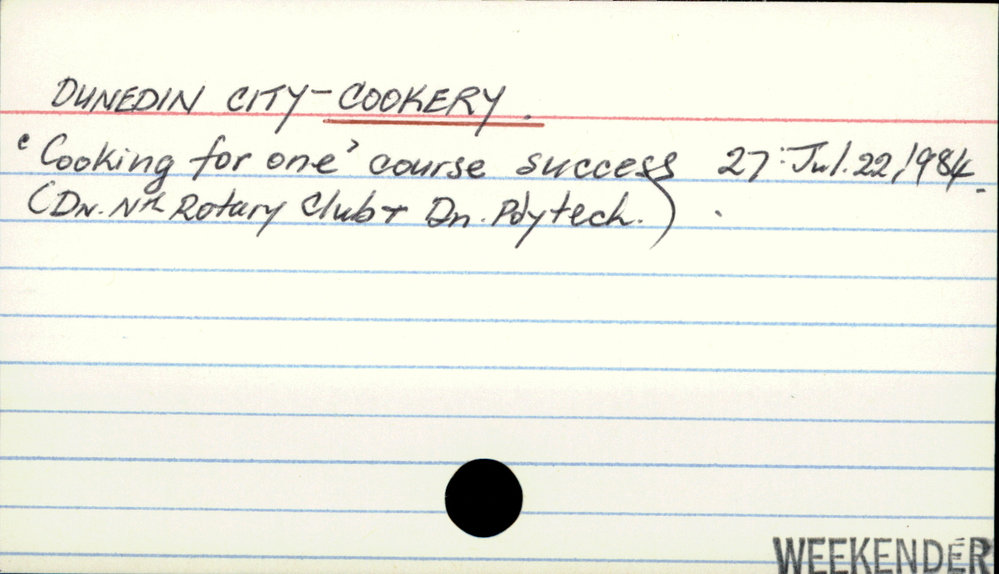 DUNEDIN CITY-COOKERY.
'Cooking for one' course success 27: Jul. 22, 1984.
(Dn. Nth Rotary Club + Dn. Polytech.).
WEEKENDER